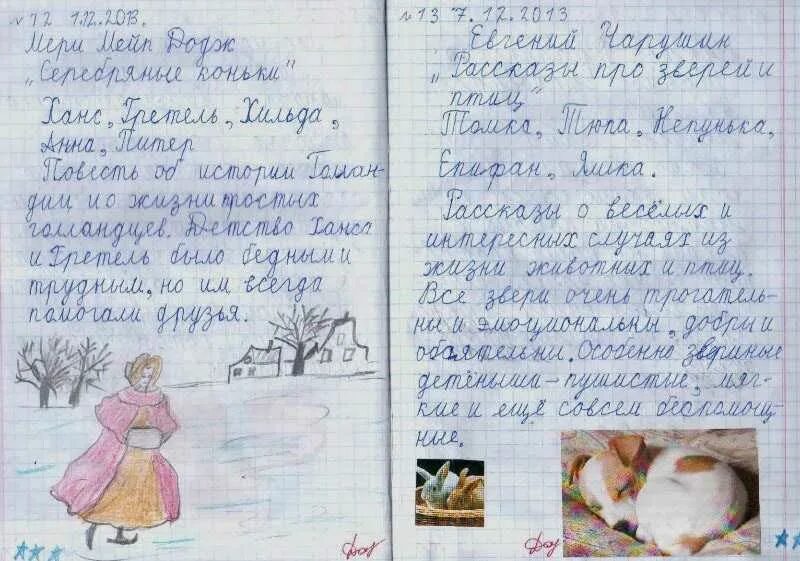 №12 1.12.2013.
Мери Мейп Додж
„Серебряные коньки"
Ханс, Гретель, Хильда,
Анна, Питер
Повесть об истории Голлан-
дии и о жизни простых
голландцев. Детство Ханса
и Гретель было бедным и
трудным, но им всегда
помогали друзья.
№13 7.12.2013
Евгений Чарушин
„Рассказы про зверей и
птиц"
Томка, Тюпа, Непунька,
Епифан, Яшка.
Рассказы о весёлых и
интересных случаях из
жизни животных и птиц.
Все звери очень трогатель-
ны и эмоциональны, добры и
обаятельны. Особенно звериные
детёныши – пушистые, мяг-
кие и ещё совсем беспомощ-
ные.